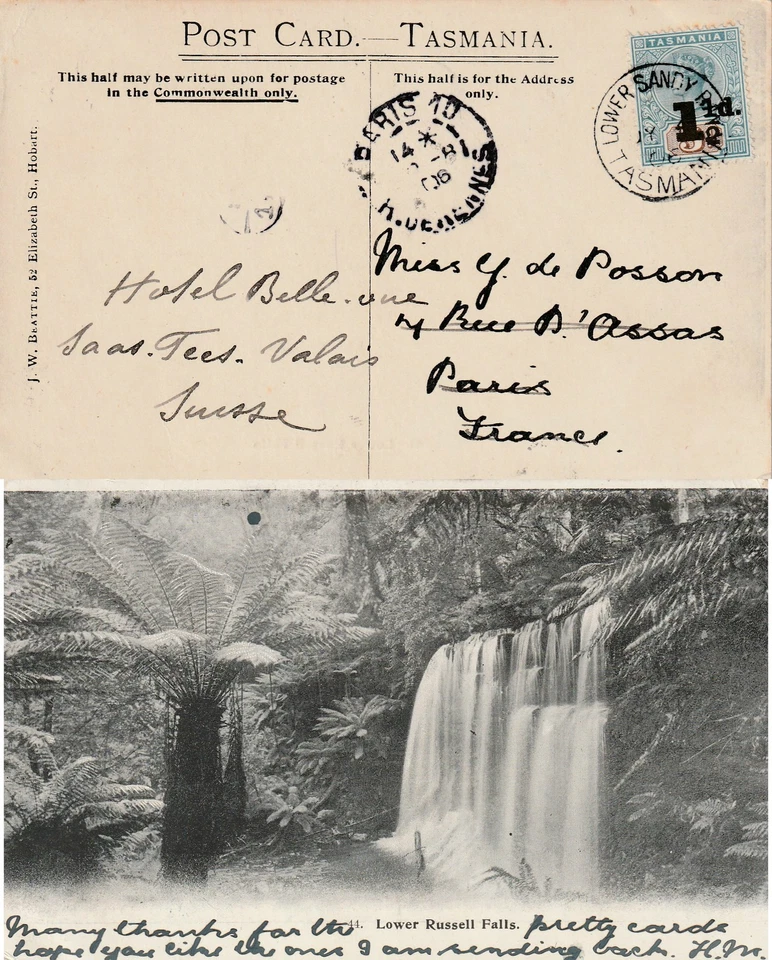 POST CARD.—TASMANIA.
This half may be written upon for postage
in the Commonwealth only.
This half is for the Address
only.
TASMANIA
1½d.
LOWER SANDY
TASMANIA
PARIS 10
14 *
-8
06
J. W. BEATTIE, 52 Elizabeth St., Hobart.
Miss Y. de Posson
Rue D'Assas
Paris
France.
Hotel Belle-vue
Saas-Fees. Valais
Suisse
44. Lower Russell Falls.
Many thanks for the pretty cards
hope you like the ones I am sending back. H.M.